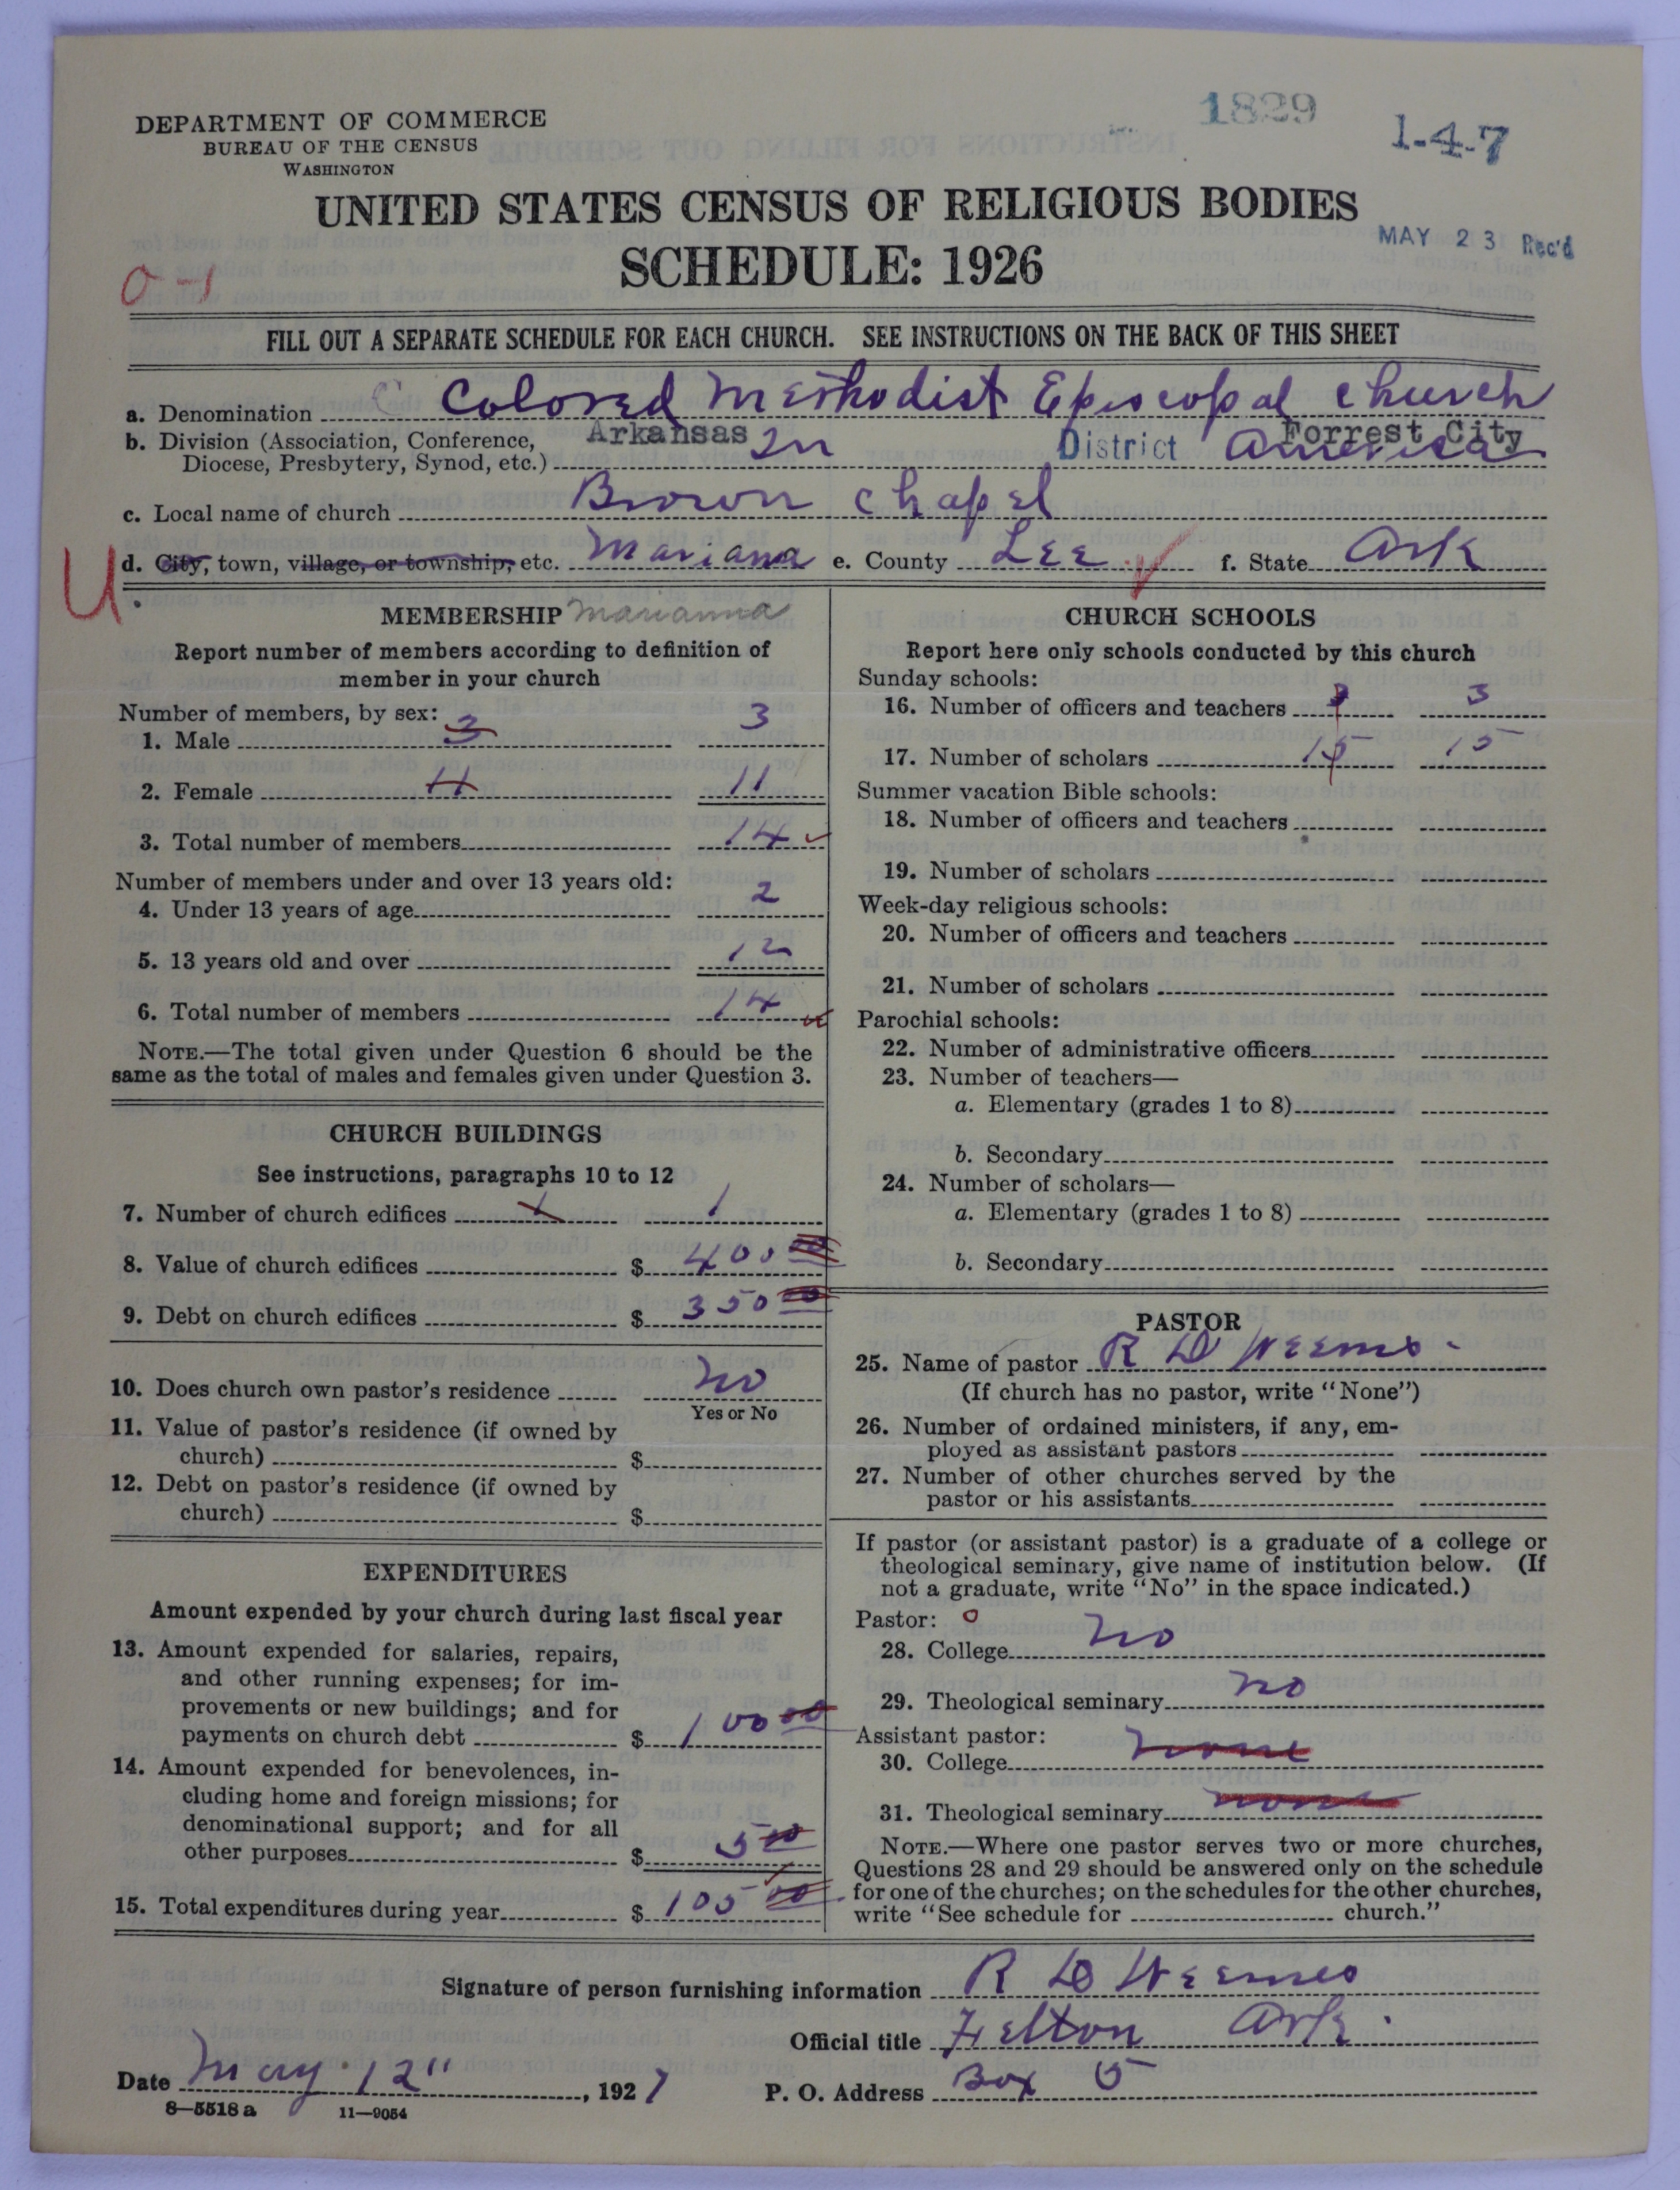 1829
1-4-7
DEPARTMENT OF COMMERCE
BUREAU OF THE CENSUS
WASHINGTON
UNITED STATES CENSUS OF RELIGIOUS BODIES
SCHEDULE: 1926
MAY 23 Rec'd
0-1
FILL OUT A SEPARATE SCHEDULE FOR EACH CHURCH. SEE INSTRUCTIONS ON THE BACK OF THIS SHEET
a. Denomination Colored Methodist Episcopal church
b. Division (Association, Conference, Arkansas In District America Forrest City
Diocese, Presbytery, Synod, etc.)
c. Local name of church Brown chapel
U. d. City, town, village, or township, etc. Mariana e. County Lee f. State Ark
MEMBERSHIP Marianna
Report number of members according to definition of
member in your church
Number of members, by sex:
1. Male 3 3
2. Female 11 11
3. Total number of members 14
Number of members under and over 13 years old:
4. Under 13 years of age 2
5. 13 years old and over 12
6. Total number of members 14
NOTE.—The total given under Question 6 should be the
same as the total of males and females given under Question 3.
CHURCH BUILDINGS
See instructions, paragraphs 10 to 12
7. Number of church edifices 1 1
8. Value of church edifices $ 400 00
9. Debt on church edifices $ 350 00
10. Does church own pastor's residence No
Yes or No
11. Value of pastor's residence (if owned by
church) $
12. Debt on pastor's residence (if owned by
church) $
EXPENDITURES
Amount expended by your church during last fiscal year
13. Amount expended for salaries, repairs,
and other running expenses; for im-
provements or new buildings; and for
payments on church debt $ 100 00
14. Amount expended for benevolences, in-
cluding home and foreign missions; for
denominational support; and for all
other purposes $ 5 00
15. Total expenditures during year $ 105 00
CHURCH SCHOOLS
Report here only schools conducted by this church
Sunday schools:
16. Number of officers and teachers 3 3
17. Number of scholars 15 15
Summer vacation Bible schools:
18. Number of officers and teachers
19. Number of scholars
Week-day religious schools:
20. Number of officers and teachers
21. Number of scholars
Parochial schools:
22. Number of administrative officers
23. Number of teachers—
a. Elementary (grades 1 to 8)
b. Secondary
24. Number of scholars—
a. Elementary (grades 1 to 8)
b. Secondary
PASTOR
25. Name of pastor R D Weems
(If church has no pastor, write "None")
26. Number of ordained ministers, if any, em-
ployed as assistant pastors
27. Number of other churches served by the
pastor or his assistants
If pastor (or assistant pastor) is a graduate of a college or
theological seminary, give name of institution below. (If
not a graduate, write "No" in the space indicated.)
Pastor: 0
28. College No
29. Theological seminary no
Assistant pastor:
30. College none
31. Theological seminary none
NOTE.—Where one pastor serves two or more churches,
Questions 28 and 29 should be answered only on the schedule
for one of the churches; on the schedules for the other churches,
write "See schedule for church."
Signature of person furnishing information R D Weems
Official title Felton Ark.
Date May 12", 1927 P. O. Address Box 5
8—5518 a 11—9054